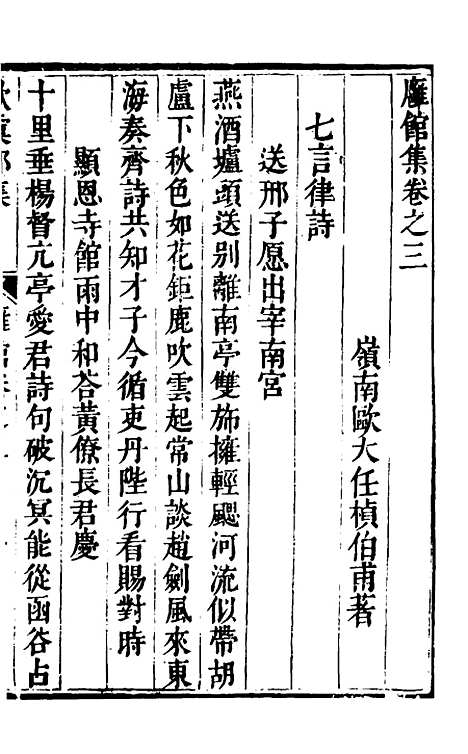 廱館集卷之三
嶺南歐大任楨伯甫著
七言律詩
送邢子愿出宰南宮
燕酒壚頭送别離南亭雙斾擁輕颸河流似帶胡
盧下秋色如花鉅鹿吹雲起常山談趙劍風來東
海奏齊詩共知才子今循吏丹陛行看賜對時
顯恩寺館雨中和荅黃僚長君慶
十里垂楊督亢亭愛君詩句破沉冥能從函谷占